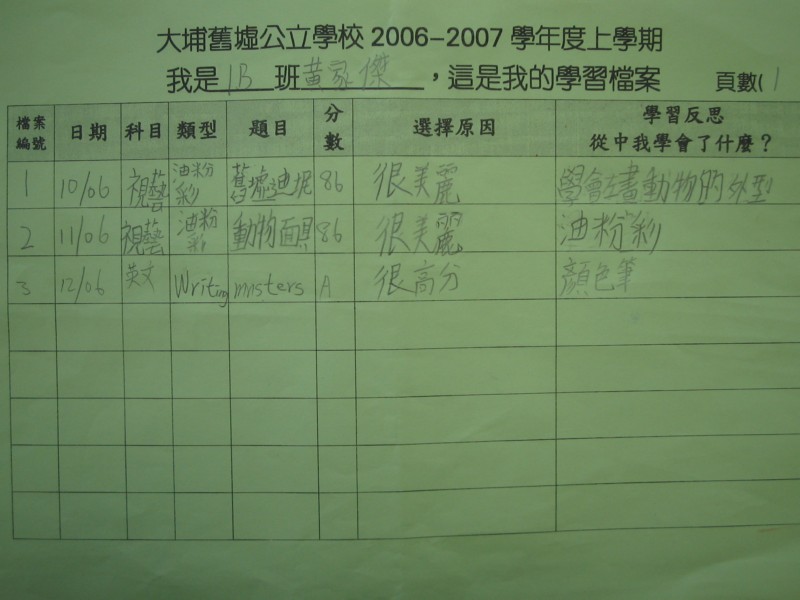 大埔舊墟公立學校 2006-2007 學年度上學期
我是 1B 班 黃家傑 ，這是我的學習檔案 頁數( 1
檔案編號 日期 科目 類型 題目 分數 選擇原因 學習反思 從中我學會了什麼？
1 10/06 視藝 油粉彩 舊墟迪坭 86 很美麗 學會左畫動物的外型
2 11/06 視藝 油粉彩 動物面具 86 很美麗 油粉彩
3 12/06 英文 Writing masters A 很高分 顏色筆